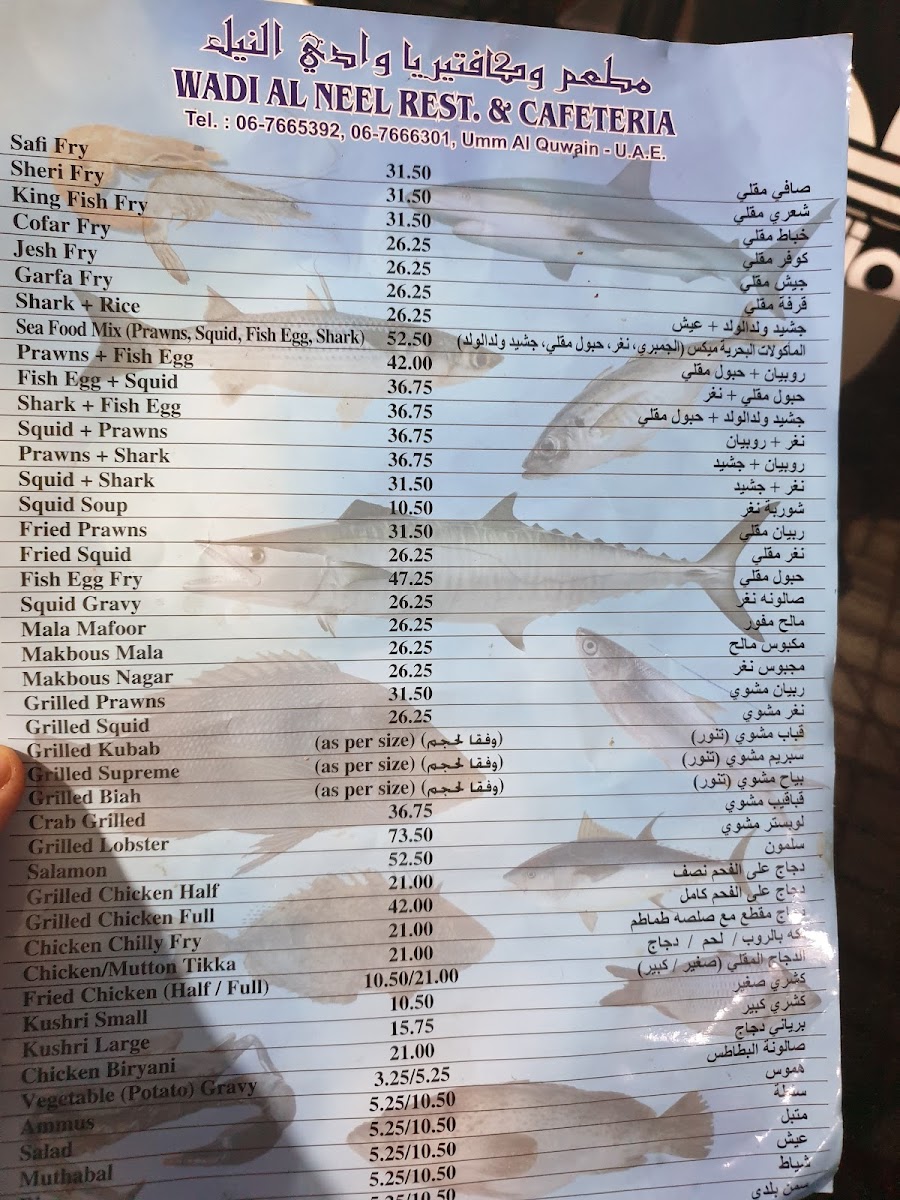 مطعم وكافتيريا وادي النيل
WADI AL NEEL REST. & CAFETERIA
Tel. : 06-7665392, 06-7666301, Umm Al Quwain - U.A.E.
Safi Fry 31.50 صافي مقلي
Sheri Fry 31.50 شعري مقلي
King Fish Fry 31.50 خباط مقلي
Cofar Fry 26.25 كوفر مقلي
Jesh Fry 26.25 جيش مقلي
Garfa Fry 26.25 قرفة مقلي
Shark + Rice 26.25 جشيد ولدالولد + عيش
Sea Food Mix (Prawns, Squid, Fish Egg, Shark) 52.50 المأكولات البحرية ميكس (الجمبري، نغر، حبول مقلي، جشيد ولدالولد)
Prawns + Fish Egg 42.00 روبيان + حبول مقلي
Fish Egg + Squid 36.75 حبول مقلي + نغر
Shark + Fish Egg 36.75 جشيد ولدالولد + حبول مقلي
Squid + Prawns 36.75 نغر + روبيان
Prawns + Shark 36.75 روبيان + جشيد
Squid + Shark 31.50 نغر + جشيد
Squid Soup 10.50 شوربة نغر
Fried Prawns 31.50 ربيان مقلي
Fried Squid 26.25 نغر مقلي
Fish Egg Fry 47.25 حبول مقلي
Squid Gravy 26.25 صالونه نغر
Mala Mafoor 26.25 مالح مفور
Makbous Mala 26.25 مكبوس مالح
Makbous Nagar 26.25 مجبوس نغر
Grilled Prawns 31.50 ربيان مشوي
Grilled Squid 26.25 نغر مشوي
Grilled Kubab (as per size) (وفقا لحجم) قباب مشوي (تنور)
Grilled Supreme (as per size) (وفقا لحجم) سبريم مشوي (تنور)
Grilled Biah (as per size) (وفقا لحجم) بياح مشوي (تنور)
Crab Grilled 36.75 قباقيب مشوي
Grilled Lobster 73.50 لوبستر مشوي
Salamon 52.50 سلمون
Grilled Chicken Half 21.00 دجاج على الفحم نصف
Grilled Chicken Full 42.00 دجاج على الفحم كامل
Chicken Chilly Fry 21.00 مقطع مع صلصه طماطم
Chicken/Mutton Tikka 21.00 بالروب / لحم / دجاج
Fried Chicken (Half / Full) 10.50/21.00 الدجاج المقلي (صغير / كبير)
Kushri Small 10.50 كشري صغير
Kushri Large 15.75 كشري كبير
Chicken Biryani 21.00 برياني دجاج
Vegetable (Potato) Gravy 3.25/5.25 صالونة البطاطس
Ammus 5.25/10.50 هموس
Salad 5.25/10.50 سلطة
Muthabal 5.25/10.50 متبل
5.25/10.50 عيش
شياط
سمن بلدي